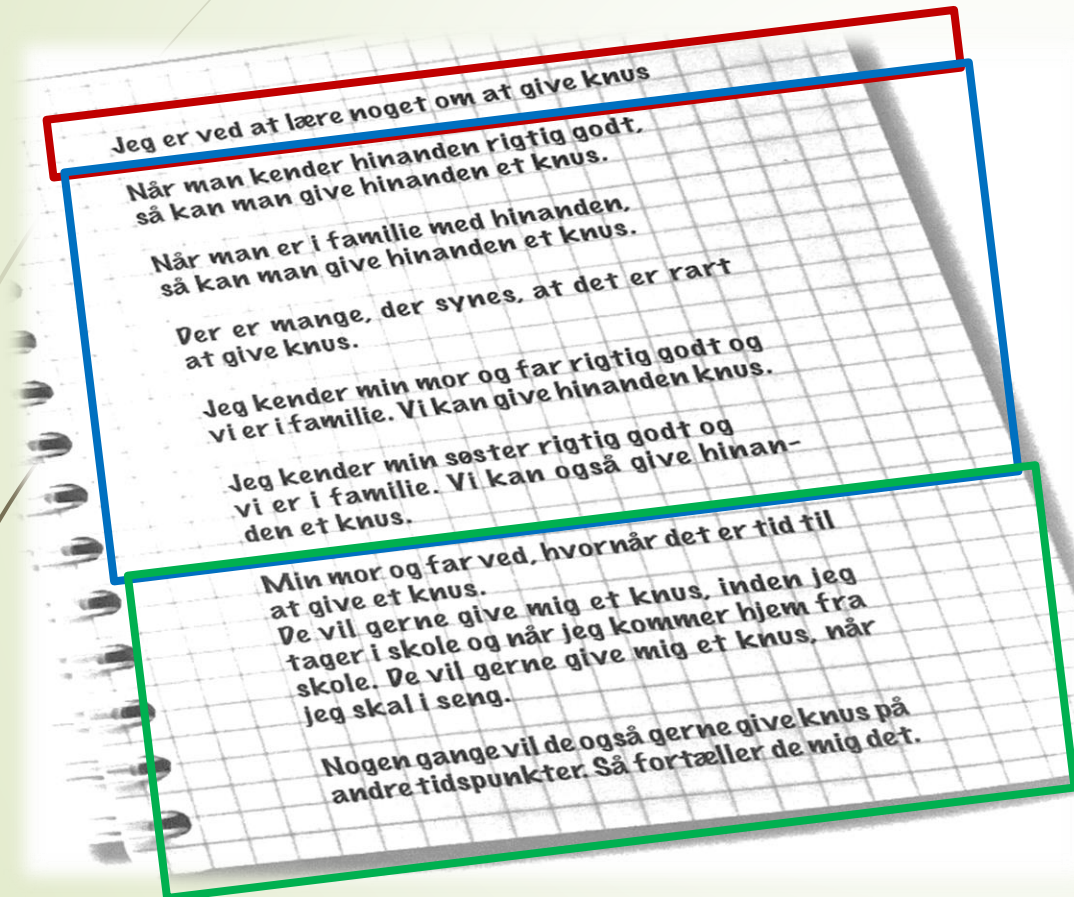 Jeg er ved at lære noget om at give knus
Når man kender hinanden rigtig godt,
så kan man give hinanden et knus.
Når man er i familie med hinanden,
så kan man give hinanden et knus.
Der er mange, der synes, at det er rart
at give knus.
Jeg kender min mor og far rigtig godt og
vi er i familie. Vi kan give hinanden knus.
Jeg kender min søster rigtig godt og
vi er i familie. Vi kan også give hinan-
den et knus.
Min mor og far ved, hvornår det er tid til
at give et knus.
De vil gerne give mig et knus, inden jeg
tager i skole og når jeg kommer hjem fra
skole. De vil gerne give mig et knus, når
jeg skal i seng.
Nogen gange vil de også gerne give knus på
andre tidspunkter. Så fortæller de mig det.